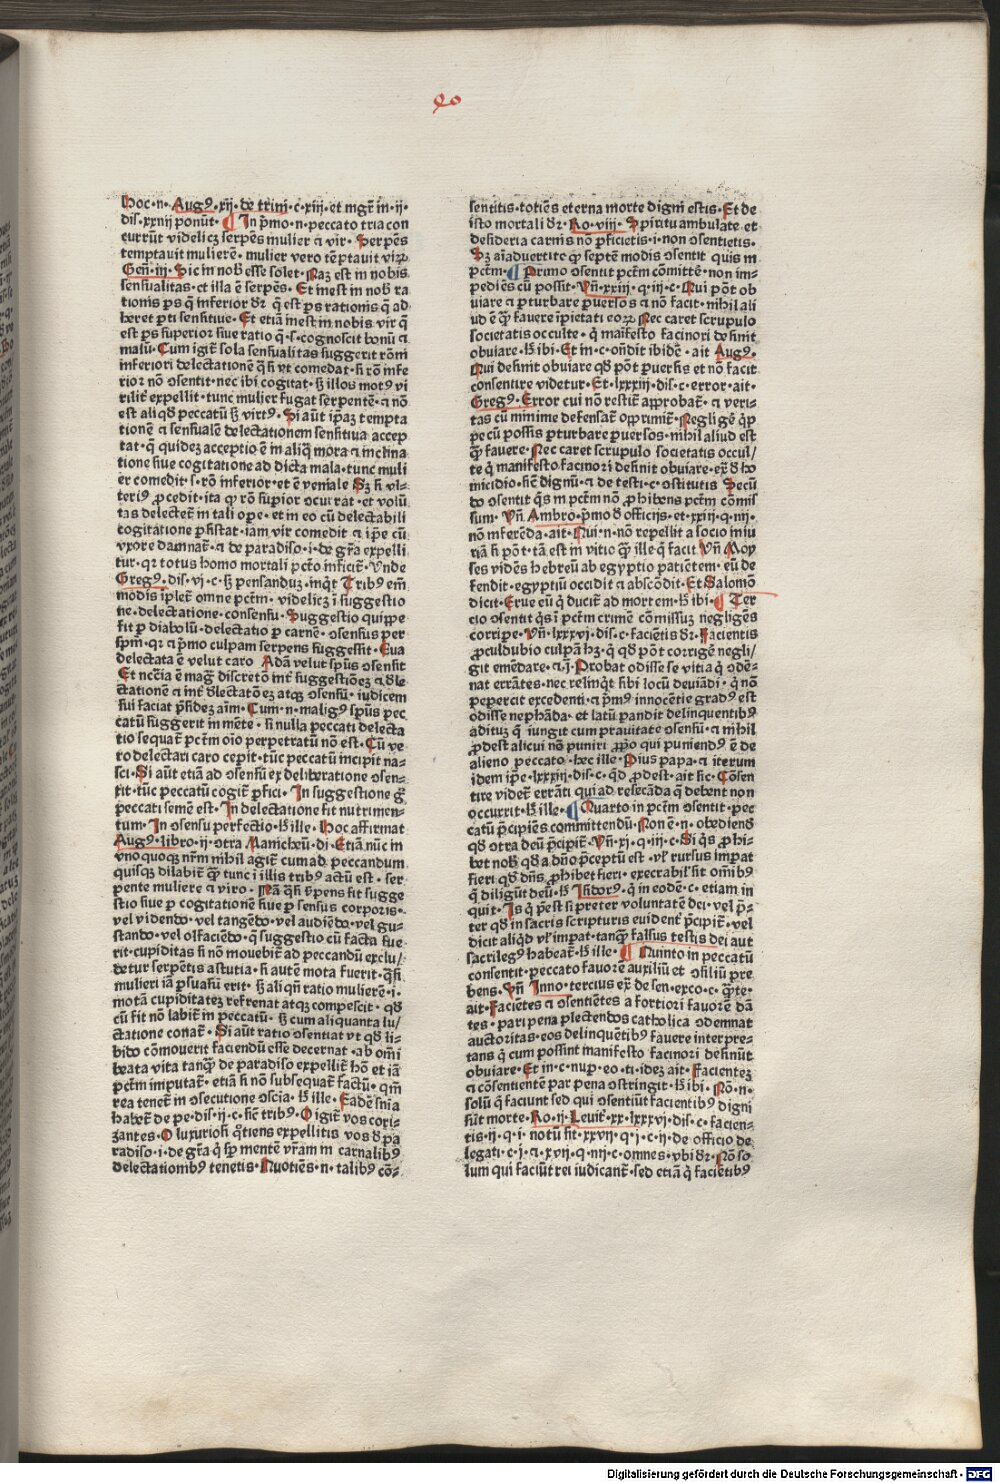 90
hoc·n·Augꝰ·xij·de trini·c·xiii·et mgr̄ in·ij·
dis·xxnij ponūt·¶ In p̄mo·n·peccato tria con
currūt videlicꝫ serpēs mulier ⁊ vir·Serpēs
temptauit mulierē·mulier vero tēptauit viꝝ
Geñ·iii·Sic in nob̄ esse solet·Naꝫ est in nobis
sensualitas·et illa ē serpēs·Et inest in nob̄ ra
tionis ꝑs q̄ inferior dr̄ q̄ est ꝑs rationis q̄ ad
heret ꝑti sensitiue·Et etiā inest in nobis vir q̄
est ꝑs superior siue ratio q̄·s·cognoscit bonū ⁊
malū·Cum igit̄ sola sensualitas suggerit rōni
inferiori delectationē q̄ si vt comedat·si rō infe
rior nō ↄsentit·nec ibi cogitat·sꝫ illos motꝰ vi
rilit̄ expellit·tunc mulier fugat serpentē·⁊ nō
est aliqd̄ peccatū sꝫ virtꝰ·Si aūt ip̄aꝫ tempta
tionē ⁊ sensualē delectationem sensitiua accep
tat·q̄ quideꝫ acceptio ē in aliq̄ mora ⁊ inclina
tione siue cogitatione ad dicta mala·tunc muli
er comedit·s·rō inferior·et ē veniale Sꝫ si vl⸗
teriꝰ ꝓcedit·ita ꝙ rō supior ocurrat·et volū
tas delectet̄ in tali ope·et in eo cū delectabili
cogitatione ꝑsistat·iam vir comedit ⁊ ip̄e cū
vxore damnat̄·⁊ de paradiso·i·de gr̄a expelli
tur·qr totus homo mortali pctō inficit̄·Vnde
Gregꝰ·dis·vj·c·sꝫ pensanduꝫ·inqt̄ Tribꝰ em̄
modis īplet̄ omne pctm̄·videlicꝫ ī suggestio
ne·delectatione·consensu·Suggestio quippe
fit ꝑ diabolū·delectatio ꝑ carnē·ↄsensus per
spm̄·qr ⁊ p̄mo culpam serpens suggessit·Eua
delectata ē velut caro Adā velut spūs ↄsensit
Et nccīa ē maḡ discretō int̄ suggestiōeꝫ ⁊ dle
ctationē ⁊ int̄ dlectatōeꝫ atqꝫ ↄsensū·iudicem
sui faciat p̄sidez aīm·Cum·n·maligꝰ spūs pec
catū suggerit in mēte·si nulla peccati delecta
tio sequat̄ pctm̄ oīo perpetratū nō est·Cū ve
ro delectari caro cepit·tūc peccatū incipit na⸗
sci·Si aūt etiā ad ↄsensū ex deliberatione ↄsen⸗
sit·tūc peccatū cogit̄ ꝑfici·In suggestione g̊
peccati semē est·In delectatione fit nutrimen⸗
tum·In ↄsensu perfectio·h̄ ille·Hoc affirmat
Augꝰ·libro·ij·ↄtra Manicheū·di·Etiā nūc in
vnoquoqꝫ nr̄m nihil agit̄ cum ad peccandum
quisqꝫ dilabit̄ ꝙ tunc ī illis tribꝰ actū est·ser
pente muliere ⁊ viro·Nā q̄si s̄pens fit sugge
stio siue ꝑ cogitationē siue ꝑ sensus corporis·
vel videndo·vel tangēdo·vel audiēdo·vel gu⸗
stando·vel olfaciēdo·q̄ suggestio cū facta fue
rit·cupiditas si nō mouebit̄ ad peccandū exclu/
detur serpētis astutia·si autē mota fuerit·q̄si
mulieri iā ꝑsuasū erit·sꝫ aliqn̄ ratio mulierē·i·
motā cupiditateꝫ refrenat atqꝫ compescit·qd̄
cū fit nō labit̄ in peccatū·sꝫ cum aliquanta lu/
ctatione conat̄·Si aūt ratio ↄsentiat vt qd̄ li⸗
bido cōmouerit faciendū esse decernat·ab om̄i
beata vita tanq̄ de paradiso expellit̄ hō et iā
pctm̄ imputat̄·etiā si nō subsequat̄ factū·qm̄
rea tenet̄ in ↄsecutione ↄscia·h̄ ille·Eadē sn̄ia
habet̄ de pe·dis·ij·c·sic̄ tribꝰ·O igit̄ vos cori⸗
zantes·O luxuriosi q̄tiens expellitis vos d̄ pa
radiso·i·de gr̄a q̄ sp̄ mentē vr̄am in carnalibꝰ
delectationibꝰ tenetis·Quotiēs·n·talibꝰ cō⸗
sentitis·totiēs eterna morte digni estis·Et de
isto mortali dr̄·Ro·viii·Spiritu ambulate et
desideria carnis nō ꝑficietis·i·non ↄsentietis·
Sꝫ aīaduertite ꝙ septē modis ↄsentit quis in
pctm̄·¶ Primo ↄsentit pctm̄ cōmittē·non im⸗
pediēs cū possit·Vn̄·xxiij·q·iij·c·Qui pōt ob
uiare ⁊ ꝑturbare ꝑuersos ⁊ nō facit·nihil ali
ud ē ꝙ fauere īpietati eoꝝ·Nec caret scrupulo
societatis occulte·q̄ maīfesto facinori desinit
obuiare·h̄ ibi·Et in·c·ↄn̄dit ibidē·ait Augꝰ·
Qui desinit obuiare qd̄ pōt ꝑuersis et nō facit
consentire videtur·Et·lxxxiij·dis·c·error·ait·
Gregꝰ·Error cui nō restit̄ approbat̄·⁊ veri⸗
tas cū minime defensat̄ opprimit̄·Negligē q̄p
pe cū possis ꝑturbare ꝑuersos·nihil aliud est
ꝙ fauere·Nec caret scrupulo societatis occul/
te q̄ manifesto facinori desinit obuiare·ex̄ d̄ ho
micidio·sic̄ dignū·⁊ de testi·c·ↄstitutis Secū
do ↄsentit q̄s in pctm̄ nō ꝓhibens pctm̄ cōmis
sum·Vn̄ Ambro·p̄mo d̄ officijs·et·xxiij·q·iij·
nō inferēda·ait·Qui·n·nō repellit a socio iniu
riā si pōt·tā est in vitio ꝙ ille q̄ facit Vn̄ Moy
ses vidēs hebreū ab egyptio patiētem·eū de
fendit·egyptiū occidit ⁊ abscōdit·Et Salomō
dicit·Erue eū q̄ ducit̄ ad mortem·h̄ ibi·¶ Ter
cio ↄsentit q̄s ī pctm̄ crimē cōmissuꝫ negligēs
corripe·Vn̄·lxxxvj·dis·c·faciētis dr̄·Facientis
ꝓculdubio culpā hꝫ·q̄ qd̄ pōt corrigē negli/
git emēdare·⁊·j·Probat odisse se vitia q̄ ↄdē⸗
nat errātes·nec relinqt̄ sibi locū deuiādi·q̄ nō
pepercit excedenti·⁊ p̄mꝰ innocētie gradꝰ est
odisse nephāda·et latū pandit delinquentibꝰ
adituꝫ q̄ iungit cum prauitate ↄsensū·⁊ nihil
ꝓdest alicui nō puniri ꝓprio qui puniendꝰ ē de
alieno peccato·hec ille·Pius papa·⁊ iterum
idem ip̄e·lxxxiij·dis·c·qd̄ ꝓdest·ait sic·Cōsen
tire videt̄ errāti qui ad resecāda q̄ debent non
occurrit·h̄ ille·¶ Quarto in pctm̄ ↄsentit·pec
catū p̄cipiēs committendū·Non ē·n·obediend̄
qd̄ ↄtra deū p̄cipit̄·Vn̄·xj·q·iij·c·Si q̄s ꝓhi⸗
bet nob̄ qd̄ a dn̄o p̄ceptū est·vl̄ rursus imꝑat
fieri qd̄ dn̄s ꝓhibet fieri·execrabil̄ sit om̄ibꝰ
q̄ diligūt deū·h̄ Isidorꝰ·q̄ in eodē·c·etiam in
quit·Is q̄ p̄est si preter voluntatē dei·vel p̄⸗
ter qd̄ in sacris scripturis euident̄ p̄cipit̄·vel
dicit aliqd̄ vl̄ imꝑat·tanꝙ falsus testis dei aut
sacrilegꝰ habeat̄·h̄ ille·¶ Quinto in peccatū
consentit·peccato fauorē auxiliū et ↄsiliū pre
bens·Vn̄ Inno·tercius ex̄ de sen·exco·c·q̄te·
ait·Faciētes ⁊ ↄsentiētes a fortiori fauorē dā
tes·pari pena plectendos catholica ↄdemnat
auctoritas·eos delinquētibꝰ fauere interpre⸗
tans q̄ cum possint manifesto facinori desinūt
obuiare·Et in·c·nuꝑ·eo·ti·ideꝫ ait·Facienteꝫ
⁊ cōsentientē par pena ↄstringit·h̄ ibi·Nō·n·
solū q̄ faciunt sed qui ↄsentiūt facientibꝰ digni
sūt morte·Ro·ij·Leuit̄·xx·lxxxvi·dis·c·facien⸗
tis·ij·q·i·notū sit·xxvij·q·i·c·ij·de officio de
legati·c·j·⁊·xvij·q·iiij·c·omnes·vbi dr̄·Nō so
lum qui faciūt rei iudicant̄·sed etiā q̄ facietibꝰ
Digitalisierung gefördert durch die Deutsche Forschungsgemeinschaft - DFG